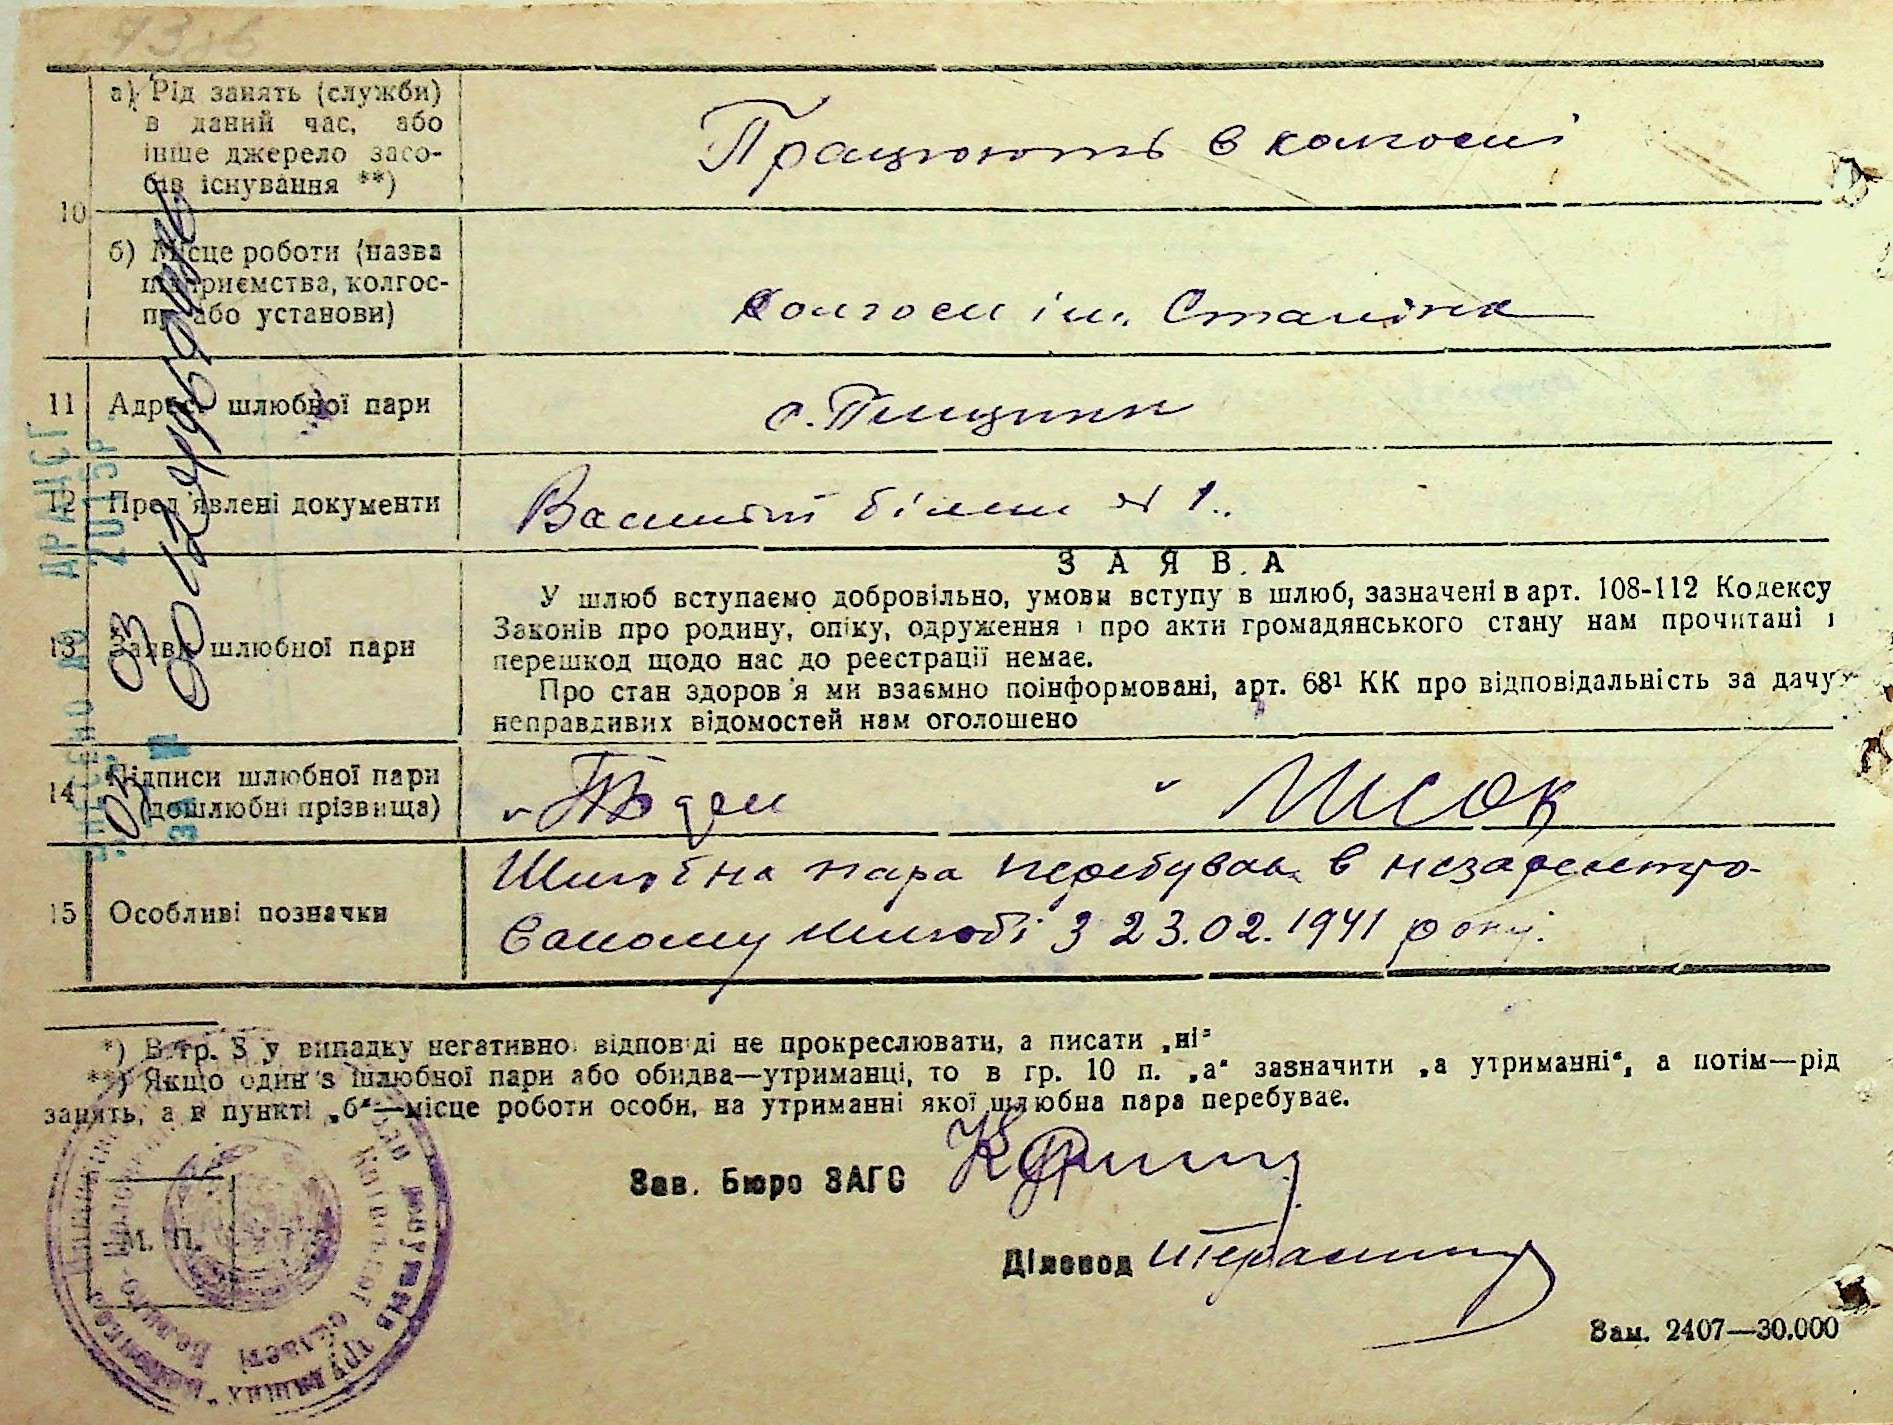 а) Рід занять (служби)
в даний час, або
інше джерело засо-
бів існування **)
Працюють в колгоспі
10
б) Місце роботи (назва
підприємства, колгос-
пу або установи)
Колгосп ім. Сталіна
11 Адреса шлюбної пари
с. Пищики
12 Пред'явлені документи
білети № 1.
ЗАЯВА
13 Заява шлюбної пари
У шлюб вступаємо добровільно, умови вступу в шлюб, зазначені в арт. 108-112 Кодексу
Законів про родину, опіку, одруження і про акти громадянського стану нам прочитані і
перешкод щодо нас до реєстрації немає.
Про стан здоров'я ми взаємно поінформовані, арт. 68¹ КК про відповідальність за дачу
неправдивих відомостей нам оголошено
14 Підписи шлюбної пари
(дошлюбні прізвища)
Лисок
15 Особливі позначки
Шлюбна пара перебував в незареєстро-
ваному шлюбі з 23.02.1941 року.
*) В гр. 8 у випадку негативної відповіді не прокреслювати, а писати „ні“
**) Якщо один з шлюбної пари або обидва—утриманці, то в гр. 10 п. „а“ зазначити „а утриманні“, а потім—рід
занять, а в пункті „б“—місце роботи особи, на утриманні якої шлюбна пара перебуває.
Зав. Бюро ЗАГС
М. П.
Діловод
Зам. 2407—30.000
ДРАЦСГ
2015р